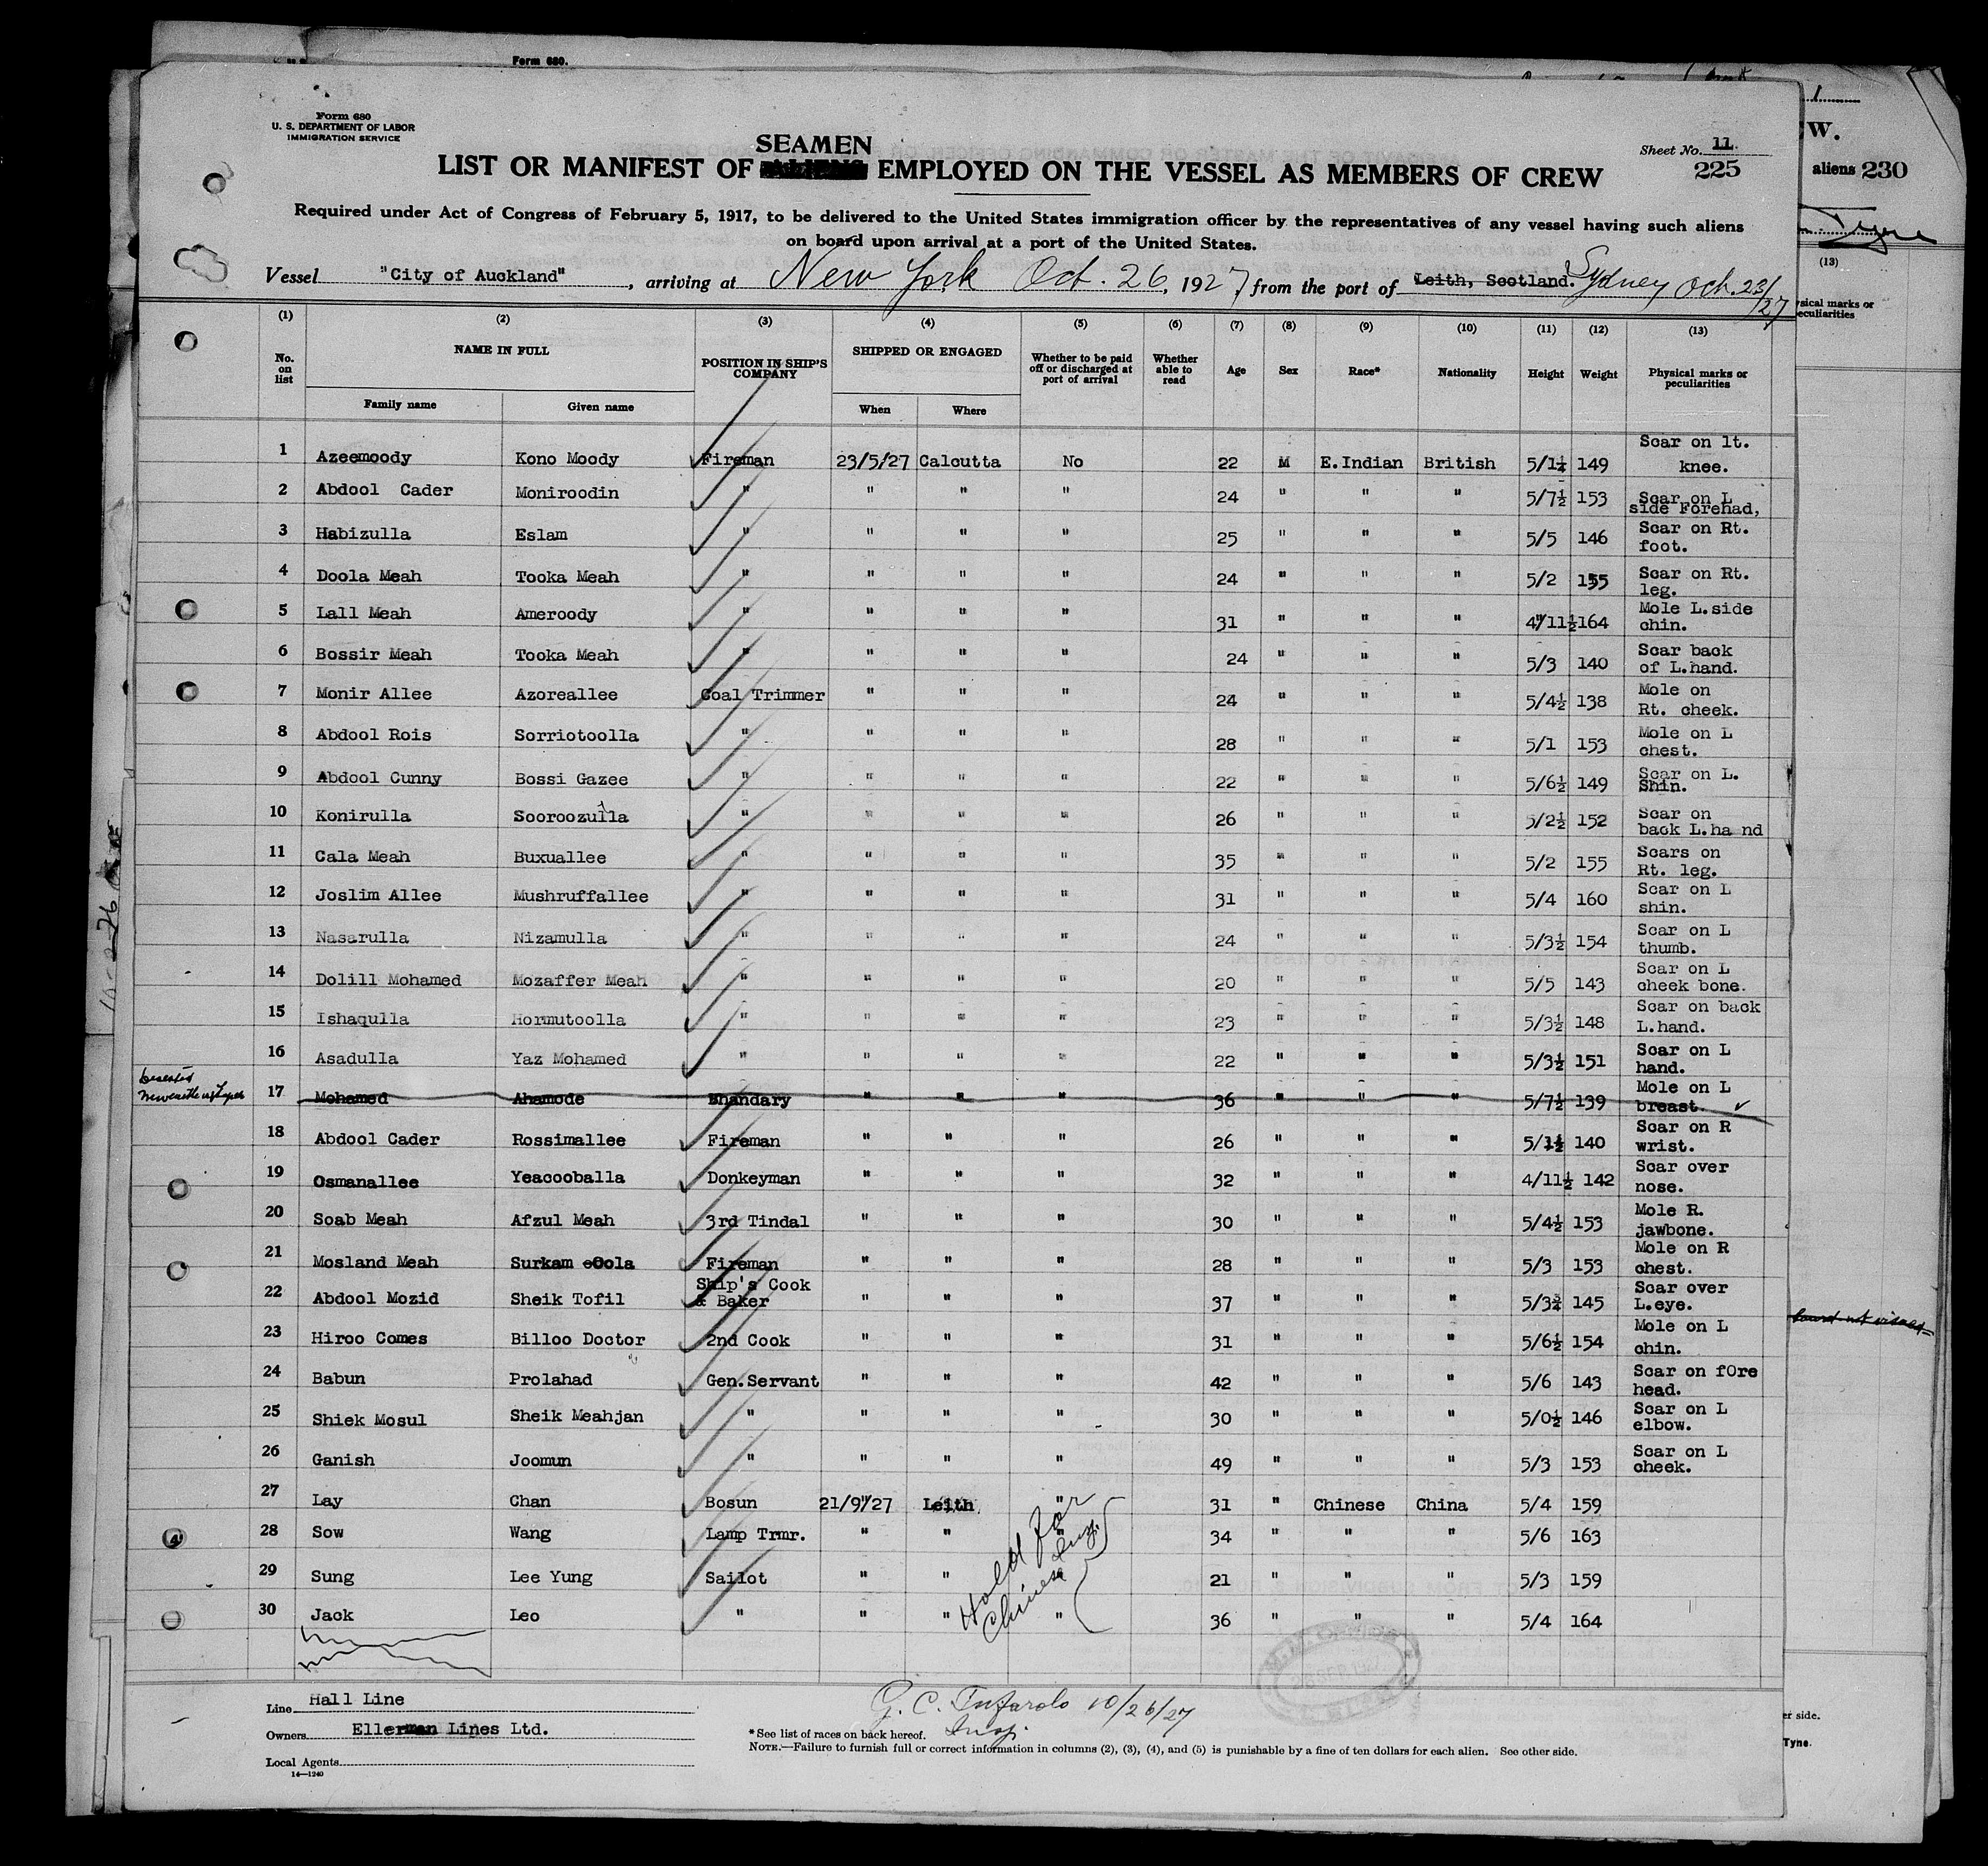 Form 680.
Form 680
U. S. DEPARTMENT OF LABOR
IMMIGRATION SERVICE
Sheet No. 11
225
aliens 230
SEAMEN
LIST OR MANIFEST OF ALIENS EMPLOYED ON THE VESSEL AS MEMBERS OF CREW
Required under Act of Congress of February 5, 1917, to be delivered to the United States immigration officer by the representatives of any vessel having such aliens
on board upon arrival at a port of the United States.
Vessel "City of Auckland", arriving at New York Oct. 26, 1927, from the port of Leith, Scotland. Sydney Oct. 23/27
(1) (2) (3) (4) (5) (6) (7) (8) (9) (10) (11) (12) (13)
No. on list NAME IN FULL Family name Given name POSITION IN SHIP'S COMPANY SHIPPED OR ENGAGED When Where Whether to be paid off or discharged at port of arrival Whether able to read Age Sex Race* Nationality Height Weight Physical marks or peculiarities
1 Azeemoody Kono Moody Fireman 23/5/27 Calcutta No 22 M E.Indian British 5/1½ 149 Scar on lt. knee.
2 Abdool Cader Moniroodin " " " " 24 " " " 5/7½ 153 Scar on L side Forehad,
3 Habizulla Eslam " " " " 25 " " " 5/5 146 Scar on Rt. foot.
4 Doola Meah Tooka Meah " " " " 24 " " " 5/2 155 Scar on Rt. leg.
5 Lall Meah Ameroody " " " " 31 " " " 4/11½ 164 Mole L.side chin.
6 Bossir Meah Tooka Meah " " " " 24 " " " 5/3 140 Scar back of L.hand.
7 Monir Allee Azoreallee Coal Trimmer " " " 24 " " " 5/4½ 138 Mole on Rt. cheek.
8 Abdool Rois Sorriotoolla " " " " 28 " " " 5/1 153 Mole on L chest.
9 Abdool Cunny Bossi Gazee " " " " 22 " " " 5/6½ 149 Scar on L. Shin.
10 Konirulla Sooroozulla " " " " 26 " " " 5/2½ 152 Scar on back L.ha nd
11 Cala Meah Buxuallee " " " " 35 " " " 5/2 155 Scars on Rt. leg.
12 Joslim Allee Mushruffallee " " " " 31 " " " 5/4 160 Scar on L shin.
13 Nasarulla Nizamulla " " " " 24 " " " 5/3½ 154 Scar on L thumb.
14 Dolill Mohamed Mozaffer Meah " " " " 20 " " " 5/5 143 Scar on L cheek bone.
15 Ishaqulla Hormutoolla " " " " 23 " " " 5/3½ 148 Scar on back L.hand.
16 Asadulla Yaz Mohamed " " " " 22 " " " 5/3½ 151 Scar on L hand.
Deserted Newcastle
17 Mohamed Ahamode Bhandary " " " 36 " " " 5/7½ 139 Mole on L breast.
18 Abdool Cader Rossimallee Fireman " " " 26 " " " 5/1½ 140 Scar on R wrist.
19 Osmanallee Yeacooballa Donkeyman " " " 32 " " " 4/11½ 142 Scar over nose.
20 Soab Meah Afzul Meah 3rd Tindal " " " 30 " " " 5/4½ 153 Mole R. jawbone.
21 Mosland Meah Surkam oOola Fireman " " " 28 " " " 5/3 153 Mole on R chest.
22 Abdool Mozid Sheik Tofil Ship's Cook & Baker " " " 37 " " " 5/3¾ 145 Scar over L.eye.
23 Hiroo Comes Billoo Doctor 2nd Cook " " " 31 " " " 5/6½ 154 Mole on L chin.
24 Babun Prolahad Gen.Servant " " " 42 " " " 5/6 143 Scar on fOre head.
25 Shiek Mosul Sheik Meahjan " " " " 30 " " " 5/0½ 146 Scar on L elbow.
26 Ganish Joomun " " " " 49 " " " 5/3 153 Scar on L cheek.
27 Lay Chan Bosun 21/9/27 Leith " 31 " Chinese China 5/4 159
28 Sow Wang Lamp Trmr. " " " 34 " " " 5/6 163
29 Sung Lee Yung Sailot " " " 21 " " " 5/3 159
30 Jack Leo " " " " 36 " " " 5/4 164
Hold for
Chinese Insp.
Line Hall Line
Owners Ellerman Lines Ltd.
Local Agents
14—1240
10/26/27
Insp.
*See list of races on back hereof.
NOTE.—Failure to furnish full or correct information in columns (2), (3), (4), and (5) is punishable by a fine of ten dollars for each alien. See other side.
W.
Tyne
(13)
er side.
Tyne.